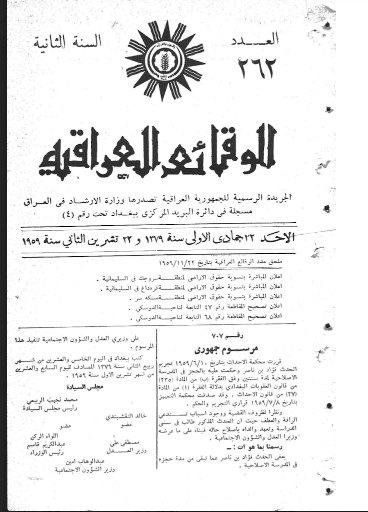 العدد
٢٦٢
السنة الثانية
الوقائع العراقية
الجريدة الرسمية للجمهورية العراقية تصدرها وزارة الارشاد في العراق
مسجلة في دائرة البريد المركزي ببغداد تحت رقم (٤)
الاحد ٢٢ جمادى الاولى سنة ١٣٧٩ و ٢٢ تشرين الثاني سنة ١٩٥٩
ملحق عدد الوقائع العراقية بتاريخ ١٩٥٩/١١/٢٢
اعلان المباشرة بتسوية حقوق الاراضي لمنطقة في السليمانية .
اعلان المباشرة بتسوية حقوق الاراضي لمنطقة
اعلان المباشرة بتسوية حقوق الاراضي لمنطقة
اعلان تصحيح المقاطعة رقم ٤٧ التابعة لناحية
اعلان تصحيح المقاطعة رقم ٦٨ التابعة لناحية
رقم ٧٠٧
مرسوم جمهوري
قررت محكمة الاحداث بتاريخ ١٩٥٩/٦/١٠ تجريم
الحدث فؤاد بن ناصر وحكمت عليه بالحجز في المدرسة
الاصلاحية لمدة سنتين وفق الفقرة (ب) من المادة (٢٣٥)
من قانون العقوبات البغدادي بدلالة الفقرة (١) من المادة
(٢٧) من قانون الاحداث . وقد صدقت محكمة التمييز
بتاريخ ١٩٥٩/٧/٨ قراري التجريم والحكم .
ونظرا لظروف القضية ووجود اسباب تستدعي
الرأفة والعطف حيث ان الحدث المذكور طالب في
المدرسة وتعهد والداه باصلاح حاله فبناء على ما عرضه
وزيرا العدل والشؤون الاجتماعية .
رسمنا بما هو آت : ــ
يعفى الحدث فؤاد بن ناصر عما تبقى من مدة حجزه
في المدرسة الاصلاحية .
على وزيري العدل والشؤون الاجتماعية تنفيذ هذا
المرسوم .
كتب ببغداد في اليوم الخامس والعشرين من شهر
ربيع الثاني سنة ١٣٧٩ المصادف لليوم السابع والعشرين
من شهر تشرين الاول سنة ١٩٥٩ .
مجلس السيادة
محمد نجيب الربيعي
رئيس مجلس السيادة
خالد النقشبندي
عضو
عضو
مصطفى علي
وزير العدل
اللواء الركن
عبدالكريم قاسم
رئيس الوزراء
عبدالوهاب امين
وزير الشؤون الاجتماعية